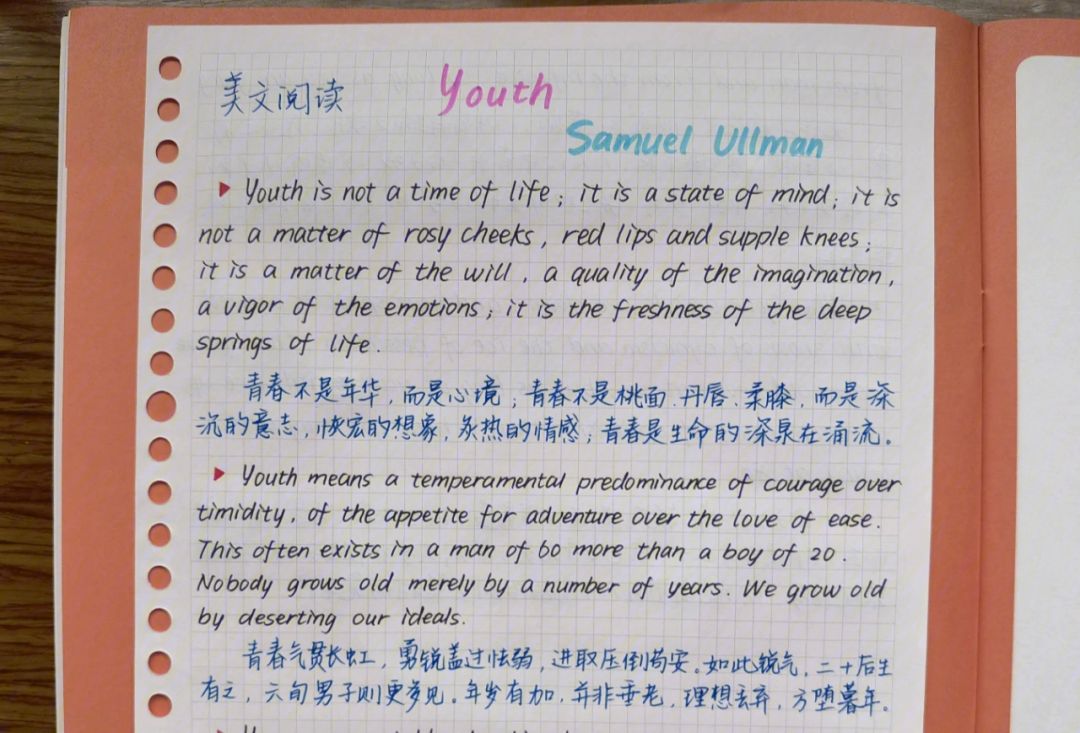 美文阅读 Youth
Samuel Ullman
Youth is not a time of life; it is a state of mind; it is
not a matter of rosy cheeks, red lips and supple knees;
it is a matter of the will, a quality of the imagination,
a vigor of the emotions; it is the freshness of the deep
springs of life.
青春不是年华,而是心境;青春不是桃面、丹唇、柔膝,而是深
沉的意志,恢宏的想象,炙热的情感;青春是生命的深泉在涌流。
Youth means a temperamental predominance of courage over
timidity, of the appetite for adventure over the love of ease.
This often exists in a man of 60 more than a boy of 20.
Nobody grows old merely by a number of years. We grow old
by deserting our ideals.
青春气贯长虹,勇锐盖过怯弱,进取压倒苟安。如此锐气,二十后生
有之,六旬男子则更多见。年岁有加,并非垂老,理想丢弃,方堕暮年。